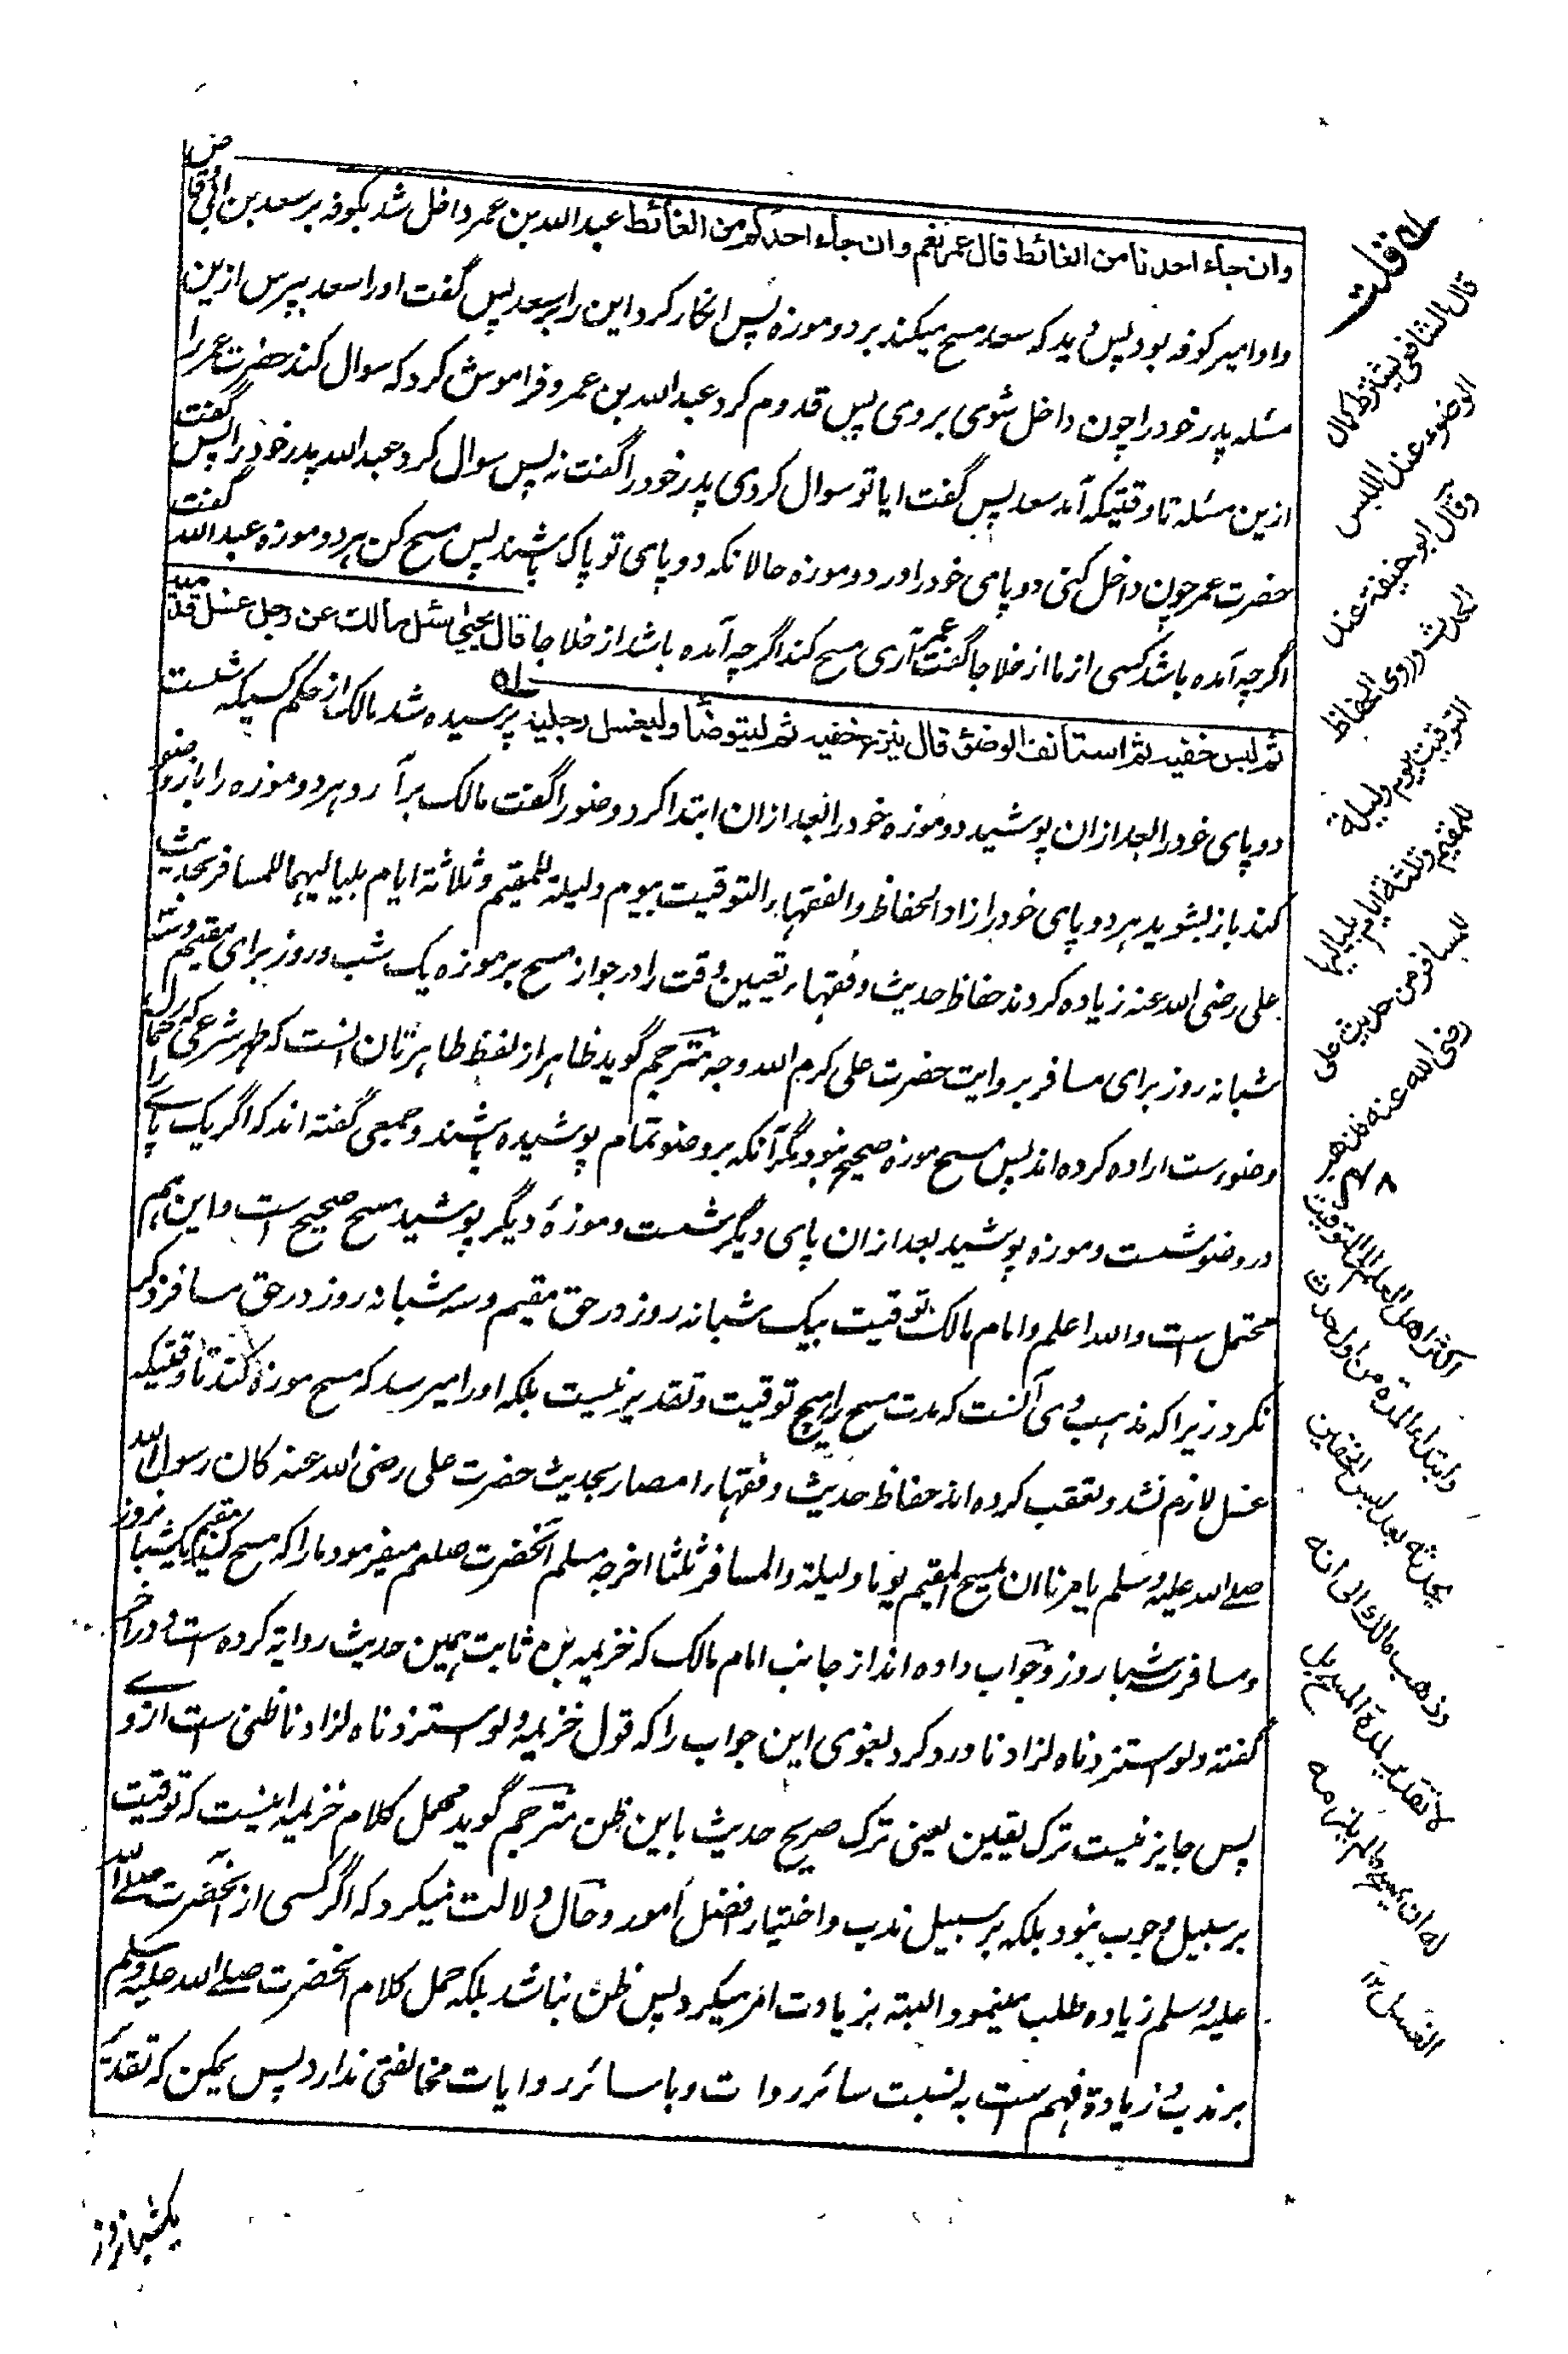 وان جاء احدنا من الغائط قال عمر نعم وان جاء احدكم من الغائط عبدالله بن عمر داخل شد بکوفه بر سعد بن ابی وقاص
واو امیر کوفه بود پس دید که سعد مسح میکند بر دو موزه پس انکار کرد این را بر سعد پس گفت اورا سعد بپرس ازین
مسئله پدر خود را چون داخل شوی بروی پس قدوم کرد عبدالله بن عمر و فراموش کرد که سوال کند حضرت عمر را
ازین مسئله تا وقتیکه آمد سعد پس گفت ایا تو سوال کردی پدر خود را گفت نه پس سوال کرد عبدالله پدر خود را پس گفت
حضرت عمر چون داخل کنی دو پای خود را در دو موزه حالانکه دو پای تو پاک باشند پس مسح کن بر دو موزه عبدالله گفت
اگرچه آمده باشد کسی از ما از خلا جا گفت عمر آری مسح کند اگرچه آمده باشد از خلا جا قال یحیی سئل مالك عن رجل غسل قدمیه
ثم لبس خفیه ثم استانف الوضوء قال ینزع خفیه ثم لیتوضأ ولیغسل رجلیه پرسیده شد مالک از حکم کسیکه شست
دو پای خود را بعد ازان پوشید دو موزه خود را بعد ازان ابتدا کرد وضو را گفت مالک برآرد هر دو موزه را باز وضو
کند باز بشوید هر دو پای خود را زاد الحفاظ والفقهاء التوقیت بیوم ولیلة للمقیم وثلاثة ایام بلیالیها للمسافر بحدیث
علی رضی الله عنه زیاده کردند حفاظ حدیث و فقهاء تعیین وقت را در جواز مسح بر موزه یک شب و روز برای مقیم و سه
شبانه روز برای مسافر بروایت حضرت علی کرم الله وجهه مترجم گوید ظاهر از لفظ طاهرتان انست که طهر شرعی که کمال
وضوست اراده کرده اند پس مسح موزه صحیح نبود مگر آنکه بر وضو تمام پوشیده باشند و جمعی گفته اند که اگر یک پای را
در وضو شست و موزه پوشید بعد ازان پای دیگر شست و موزۀ دیگر پوشید مسح صحیح است و این هم
محتمل ست والله اعلم و امام مالک توقیت بیک شبانه روز در حق مقیم و سه شبانه روز در حق مسافر ذکر
نکرد زیرا که مذهب وی آنست که مدت مسح را هیچ توقیت و تقدیر نیست بلکه اورا میرسد که مسح موزه کند تا وقتیکه
غسل لازم نشد و تعقب کرده اند حفاظ حدیث و فقهاء امصار بحدیث حضرت علی رضی الله عنه کان رسول الله
صلے الله علیه وسلم یامرنا ان یمسح المقیم یوما ولیلة والمسافر ثلثا اخرجه مسلم آنحضرت صلعم میفرمود مارا که مسح کند مقیم یکشبانروز
و مسافر سه شبا روز و جواب داده اند از جانب امام مالک که خزیمه بن ثابت همین حدیث روایة کرده ست و در آخر
گفته ولو استزدناه لزادنا و رد کرد بغوی این جواب را که قول خزیمه ولو استزدناه لزادنا ظنی ست از وے
پس جایز نیست ترک یقین یعنی ترک صریح حدیث باین ظن مترجم گوید محمل کلام خزیمه اینست که توقیت
بر سبیل وجوب نبود بلکه بر سبیل ندب و اختیار افضل امور و حال دلالت میکرد که اگر کسی از آنحضرت صلے الله
علیه وسلم زیاده طلب مینمود البته بزیادت امر میکرد پس ظن نباشد بلکه حمل کلام آنحضرت صلے الله علیه وسلم
بر ندب و زیادة فهم ست به نسبت سائر روات و با سائر روایات مخالفتی ندارد پس یمکن که تقدیر
یکشبانروز
له قلت
قال الشافعی یشترط کمال
الوضوء عند اللبس
وقال ابو حنیفة عند
الحدث وروی الحفاظ
التوقیت بیوم ولیلة
للمقیم وثلثة ایام بلیالیها
للمسافر من حدیث علی
رضی الله عنه فذهب
اکثر اهل العلم الی التوقیت
وابتداء المدة من اول حدث
یحدثه بعد لبس الخفین
وذهب مالك الی انه
لا تقدیر لمدة المسح بل
له ان یمسح مالم یلزمه
الغسل